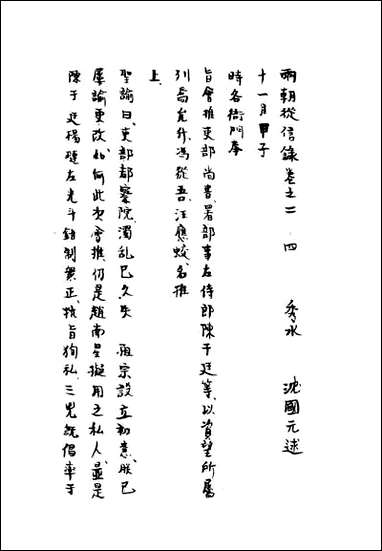 兩朝從信錄卷之二 四 秀水 沈國元述
十一月甲子
時各衙門奉
旨會推吏部尚書署部事左侍郎陳于廷等以資望所屬
列喬允升馮從吾汪應蛟名推
上
聖諭曰吏部都察院濁亂已久失 祖宗設立初意朕已
屢諭更改如何此次會推仍是趙南星擬用之私人顯是
陳于廷楊漣左光斗鉗制眾正抗旨徇私三兇旣倡率于